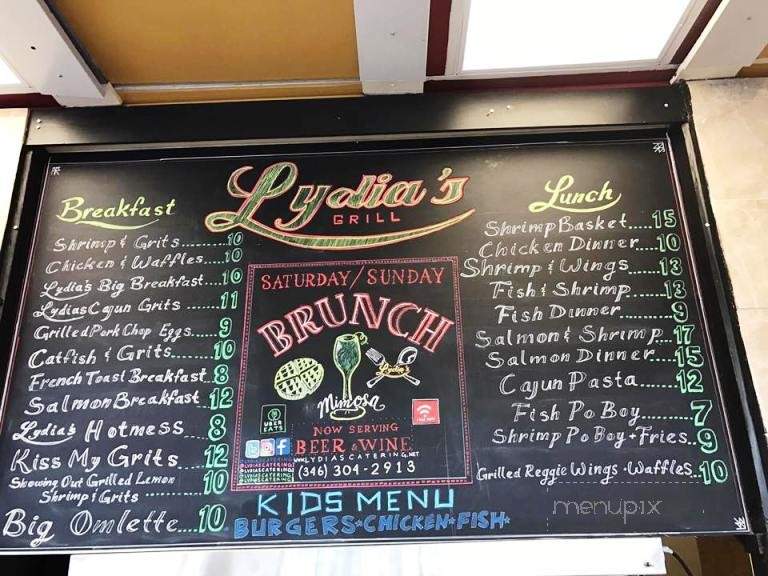 Lydia's
GRILL
Breakfast
Shrimp & Grits......10
Chicken & Waffles...10
Lydia's Big Breakfast...10
Lydias Cajun Grits....11
Grilled Pork Chop Eggs...9
Catfish & Grits....10
French Toast Breakfast..8
Salmon Breakfast...12
Lydia's Hotmess...8
Kiss My Grits...12
Showing Out Grilled Lemon
Shrimp & Grits......10
Big Omlette....10
SATURDAY/SUNDAY
BRUNCH
Lydia's
Mimosa
UBER
EATS
FREE WIFI
NOW SERVING
BEER & WINE
WWW.LYDIASCATERING.NET
@LYDIASCATERING
@LYDIASCATERING
@LYDIASCATERING
(346) 304-2913
KIDS MENU
BURGERS*CHICKEN*FISH*
Lunch
Shrimp Basket....15
Chicken Dinner....10
Shrimp & Wings....13
Fish & Shrimp....13
Fish Dinner.....9
Salmon & Shrimp...17
Salmon Dinner...15
Cajun Pasta....12
Fish Po Boy.....7
Shrimp Po Boy + Fries..9
Grilled Reggie Wings + Waffles..10
menupix